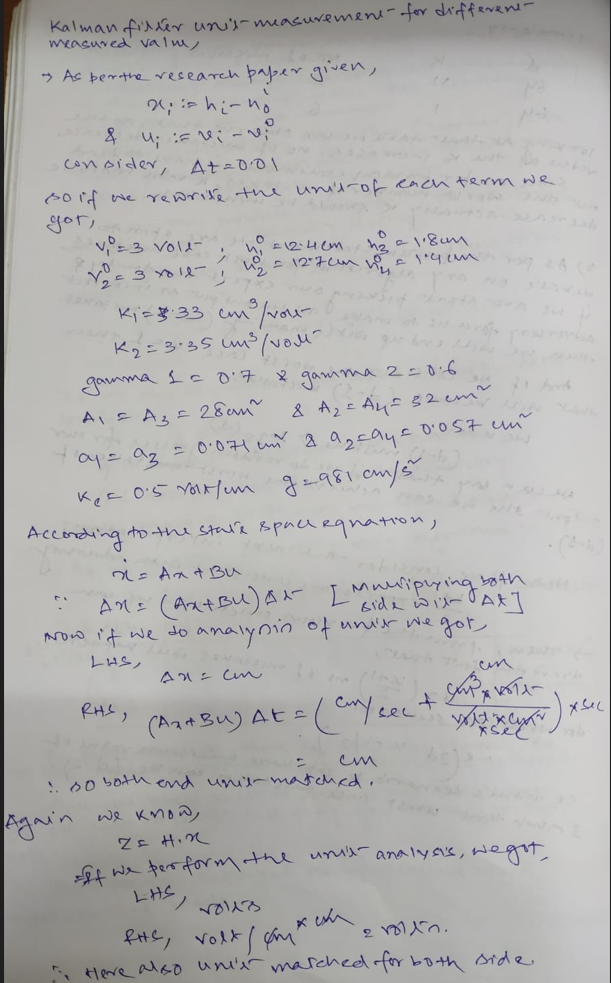 Kalman filter unit measurement for different
measured value,
→ As per the research paper given,
xi := hi - hi⁰
& ui := vi - vi⁰
consider, Δt = 0.01
so if we rewrite the unit of each term we
got,
v1⁰ = 3 volt ; h1⁰ = 12.4 cm h3⁰ = 1.8 cm
v2⁰ = 3 volt ; h2⁰ = 12.7 cm h4⁰ = 1.4 cm
K1 = 3.33 cm³/volt
K2 = 3.35 cm³/volt
gamma 1 = 0.7 & gamma 2 = 0.6
A1 = A3 = 28 cm² & A2 = A4 = 32 cm²
a1 = a3 = 0.071 cm² & a2 = a4 = 0.057 cm²
Kc = 0.5 volt/cm g = 981 cm/s²
According to the state space equation,
ẋ = Ax + Bu
∴ Δx = (Ax + Bu) Δt [Multiplying both
side wit Δt]
Now if we do analysis of unit we got,
LHS, Δx = cm
RHS, (Ax + Bu) Δt = (cm/sec + cm³ × volt / volt × cm² × sec) × sec
cm
= cm
∴ so both end unit matched.
Again we know,
Z = H.x
If we perform the unit analysis, we got,
LHS, volts
RHS, volt/cm × cm = volts.
∴ Here also unit matched for both side.